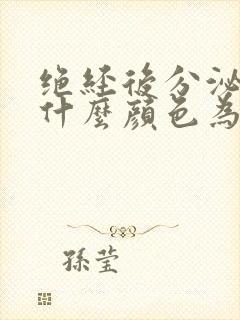 绝经後分泌
什麼顏色為
孫莹